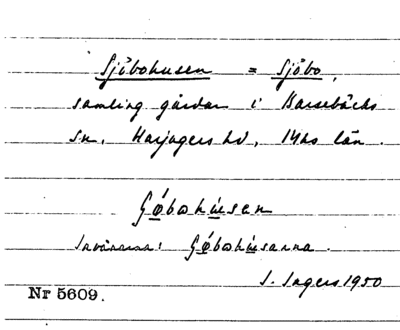 Sjöbohusen = Sjöbo,
samling gårdar i Barsebäcks
sn, Harjagers hd, Mhs län.
Gǿbohúsen
Invånarna: Gǿbohúsarna.
I. Ingers 1950
Nr 5609.